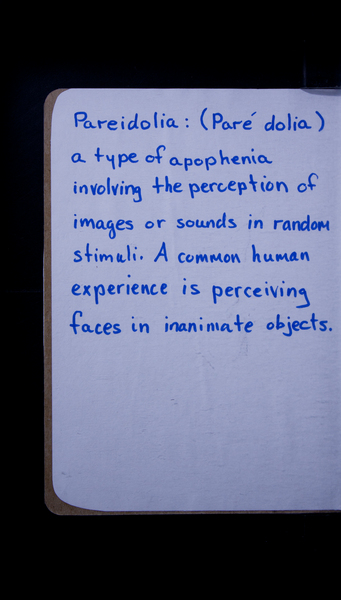 Pareidolia: (Paré dolia)
a type of apophenia
involving the perception of
images or sounds in random
stimuli. A common human
experience is perceiving
faces in inanimate objects.